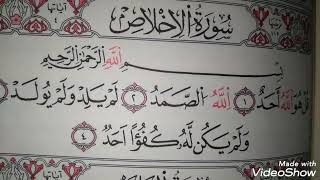 سُورَةُ الْإِخْلَاصِ
بِسْمِ اللَّهِ الرَّحْمَنِ الرَّحِيمِ
قُلْ هُوَ اللَّهُ أَحَدٌ ١ اللَّهُ الصَّمَدُ ٢ لَمْ يَلِدْ وَلَمْ يُولَدْ ٣
وَلَمْ يَكُن لَّهُ كُفُوًا أَحَدٌ ٤
Made with
VideoShow